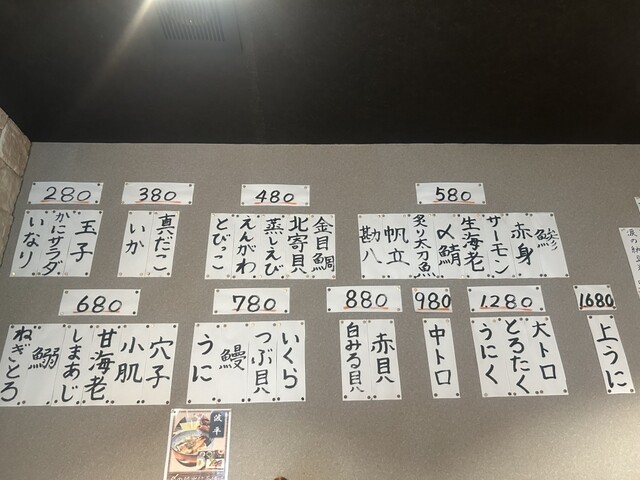 280
玉子
かにサラダ
いなり
380
真だこ
いか
480
金目鯛
北寄貝
蒸しえび
えんがわ
とびっこ
580
鯵
赤身
サーモン
生海老
〆鯖
炙り太刀魚
帆立
勘八
680
穴子
小肌
甘海老
しまあじ
鰯
ねぎとろ
780
いくら
つぶ貝
鰻
うに
880
赤貝
白みる貝
980
中トロ
1280
大トロ
とろたく
うにく
1680
上うに
波平